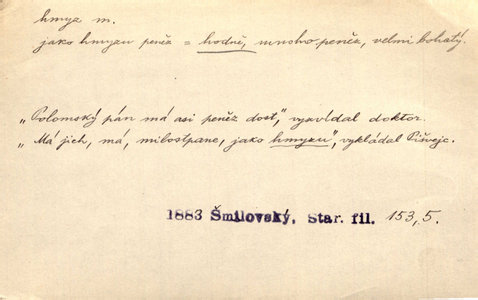 hmyz m.
jako hmyzu peněz = hodně, mnoho peněz, velmi bohatý.
„Polomský pán má asi peněz dost," vyzvídal doktor.
„Má jich, má, milostpane, jako hmyzu", vykládal Pišvejc.
1883 Šmilovský, Star. fil. 153,5.